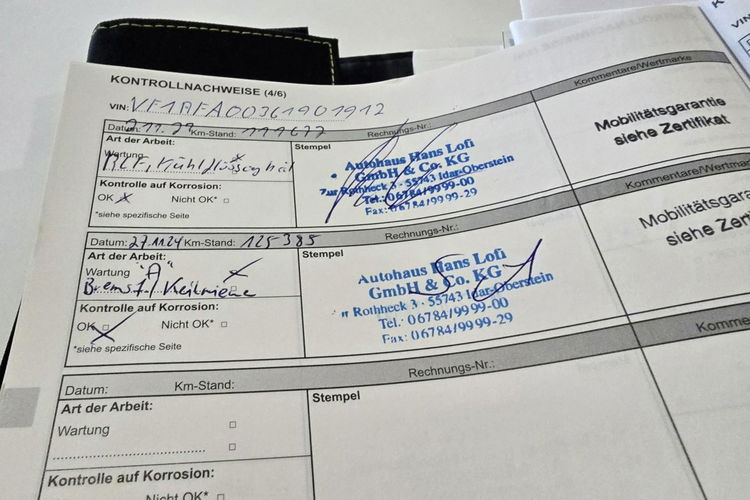 KONTROLLNACHWEISE (4/6)
VIN: VF1RFA00361901912
Datum: Km-Stand: 111677 Rechnungs-Nr.: Kommentare/Wertmarke
Art der Arbeit:
Wartung
Kühlflüssigkeit
Kontrolle auf Korrosion:
OK Nicht OK*
*siehe spezifische Seite
Stempel
Autohaus Hans Lofi
GmbH & Co. KG
Rothheck 3 · 55743 Idar-Oberstein
Tel.: 06784/9999-00
Fax: 06784/9999-29
Mobilitätsgarantie
siehe Zertifikat
Datum: 27.11.24 Km-Stand: 125385 Rechnungs-Nr.: Kommentare/Wertmarke
Art der Arbeit:
Wartung "A"
Bremsfl./Keilrieme
Kontrolle auf Korrosion:
OK Nicht OK*
*siehe spezifische Seite
Stempel
Autohaus Hans Lofi
GmbH & Co. KG
Rothheck 3 · 55743 Idar-Oberstein
Tel.: 06784/9999-00
Fax: 06784/9999-29
Mobilitätsgara
siehe Zer
Datum: Km-Stand: Rechnungs-Nr.: Komme
Art der Arbeit:
Wartung
Kontrolle auf Korrosion:
Nicht OK*
Stempel
VIN